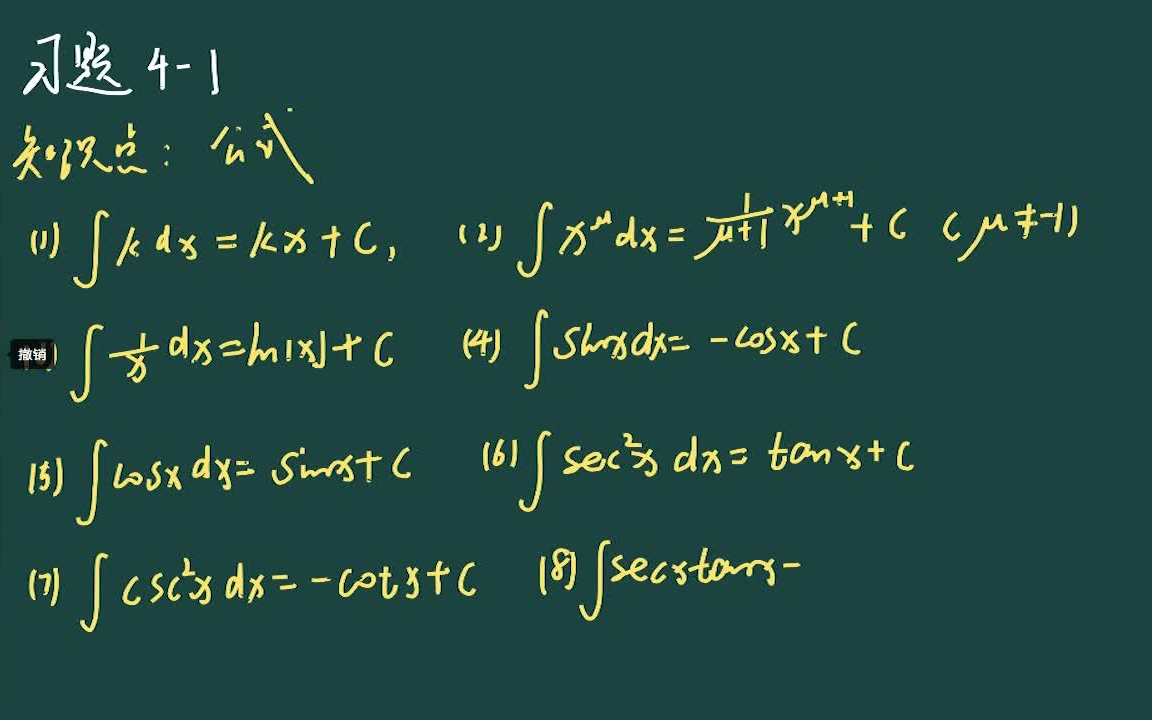 习题 4-1
知识点: 公式
(1) ∫ k dx = kx + C, (2) ∫ x^μ dx = 1/(μ+1) x^(μ+1) + C (μ ≠ -1)
撤销 ) ∫ 1/x dx = ln|x| + C (4) ∫ sinx dx = -cosx + C
(5) ∫ cosx dx = sinx + C (6) ∫ sec²x dx = tanx + C
(7) ∫ csc²x dx = -cotx + C (8) ∫ secxtanx -